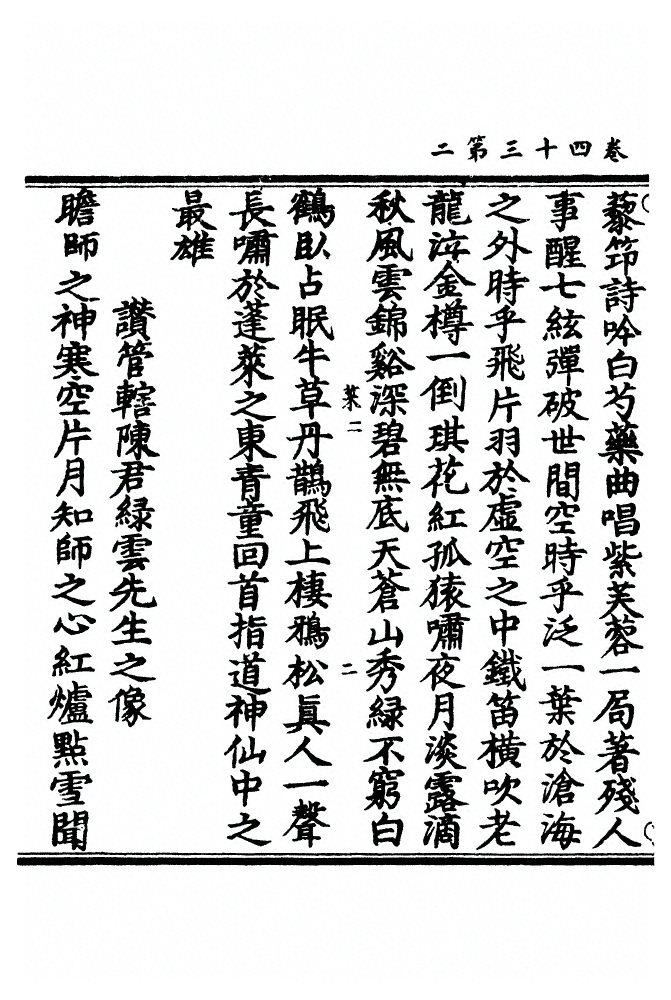 卷四十三第二
藜筇詩吟白芍藥曲唱紫芙蓉一局著殘人
事醒七絃彈破世間空時乎泛一葉於滄海
之外時乎飛片羽於虛空之中鐵笛橫吹老
龍泣金樽一倒琪花紅孤猿嘯夜月淡露滴
秋風雲錦谿深碧無底天蒼山秀綠不窮白
菜二
二
鶴臥占眠牛草丹鵲飛上棲鴉松眞人一聲
長嘯於蓬萊之東青童回首指道神仙中之
最雄
讚管轄陳君綠雲先生之像
瞻師之神寒空片月知師之心紅爐點雪聞